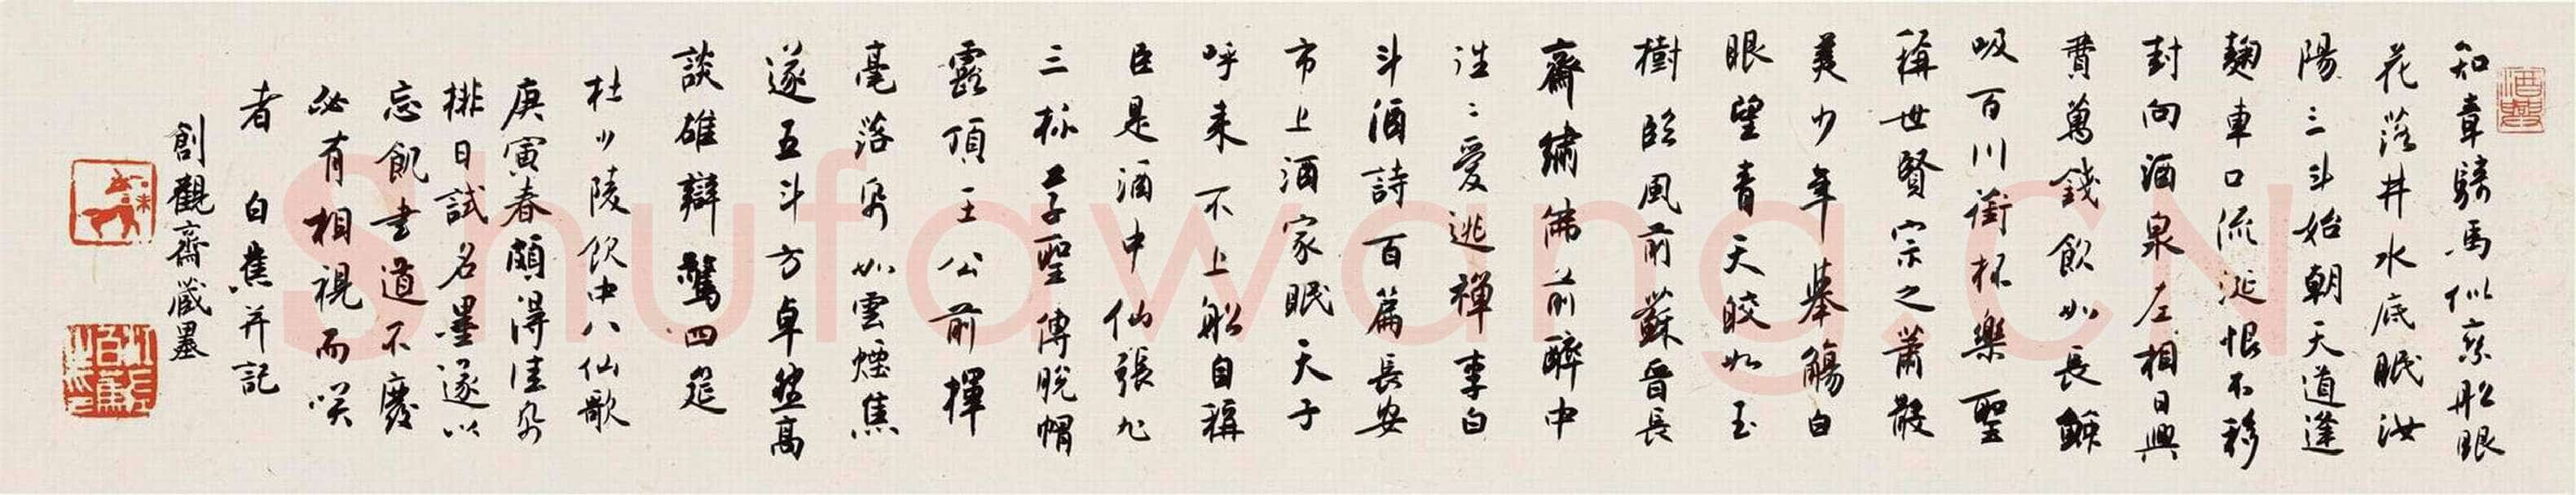 知章騎馬似乘船眼
花落井水底眠汝
陽三斗始朝天道逢
麹車口流涎恨不移
封向酒泉左相日興
費萬錢飲如長鯨
吸百川銜杯樂聖
稱世賢宗之蕭散
美少年舉觴白
眼望青天皎如玉
樹臨風前蘇晉長
齋繡佛前醉中
往〻愛逃禪李白
斗酒詩百篇長安
市上酒家眠天子
呼來不上船自稱
臣是酒中仙張旭
三杯草聖傳脫帽
露頂王公前揮
毫落紙如雲煙焦
遂五斗方卓然高
談雄辯驚四筵
杜少陵飲中八仙歌
庚寅春頗得佳紙
排日試名墨遂以
忘飢書道不廢
必有相視而笑
者 白蕉并記
創觀齋藏墨
Shufawang.CN